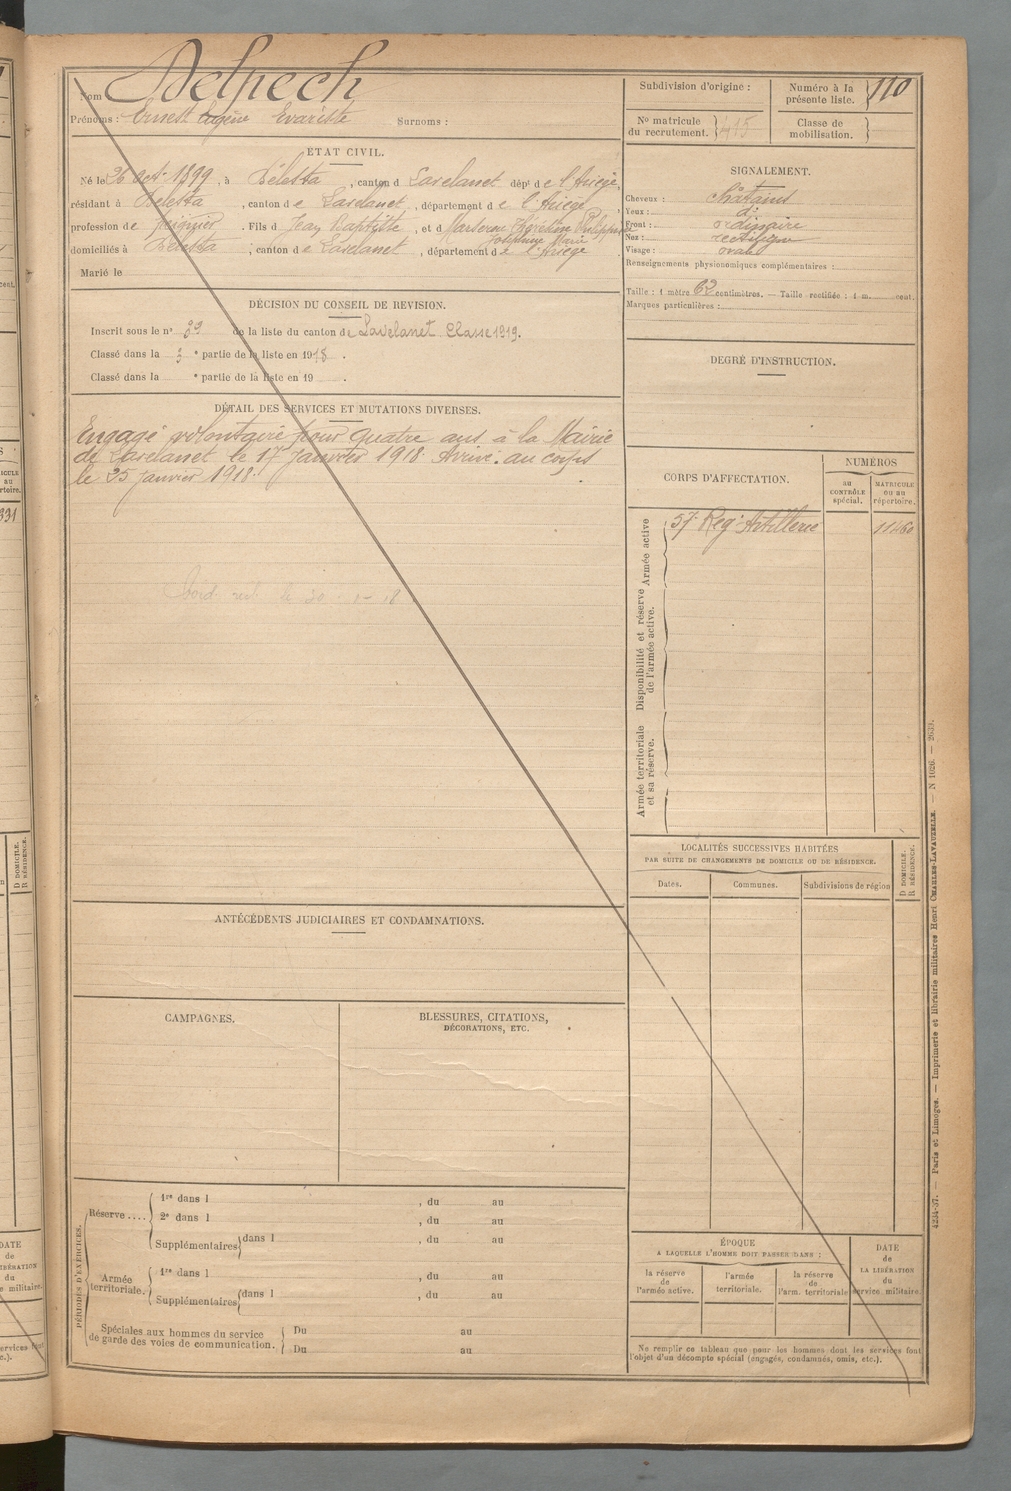 Nom Delpech
Prénoms : Ernest Eugène Evariste Surnoms :
ETAT CIVIL.
Né le 26 oct. 1899, à Bélesta, canton d Lavelanet dépt de l'Ariège,
résidant à Bélesta, canton de Lavelanet, département de l'Ariège
profession de peignier. Fils d Jean Baptiste, et d
Joséphine Marie
domiciliés à Bélesta, canton de Lavelanet, département de l'Ariège
Marié le
DÉCISION DU CONSEIL DE REVISION.
Inscrit sous le n° 39 de la liste du canton de Lavelanet Classe 1919.
Classé dans la 3 e partie de la liste en 1918.
Classé dans la e partie de la liste en 19 .
DÉTAIL DES SERVICES ET MUTATIONS DIVERSES.
Engagé volontaire pour quatre ans à la Mairie
de Lavelanet le 17 janvier 1918. Arrivé au corps
le 25 janvier 1918.
ANTÉCÉDENTS JUDICIAIRES ET CONDAMNATIONS.
CAMPAGNES.
BLESSURES, CITATIONS,
DÉCORATIONS, ETC.
PÉRIODES D'EXERCICES.
Réserve....
1re dans l , du au
2e dans l , du au
Supplémentaires dans l , du au
Armée
territoriale.
1re dans l , du au
Supplémentaires dans l , du au
Spéciales aux hommes du service
de garde des voies de communication.
Du au
Du au
Subdivision d'origine :
Numéro à la
présente liste. 110
No matricule
du recrutement. 415
Classe de
mobilisation.
SIGNALEMENT.
Cheveux : châtains
Yeux : do
Front : ordinaire
Nez : rectiligne
Visage : ovale
Renseignements physionomiques complémentaires :
Taille : 1 mètre 62 centimètres. — Taille rectifiée : 1 m. cent.
Marques particulières :
DEGRÉ D'INSTRUCTION.
CORPS D'AFFECTATION.
NUMÉROS
au
CONTRÔLE
spécial.
MATRICULE
ou au
répertoire.
Armée active
57e Reg. Artillerie 11460
Disponibilité et réserve
de l'armée active.
Armée territoriale
et sa réserve.
LOCALITÉS SUCCESSIVES HABITÉES
PAR SUITE DE CHANGEMENTS DE DOMICILE OU DE RÉSIDENCE.
D DOMICILE.
R RÉSIDENCE.
Dates. Communes. Subdivisions de région
ÉPOQUE
A LAQUELLE L'HOMME DOIT PASSER DANS :
la réserve
de
l'armée active.
l'armée
territoriale.
la réserve
de
l'arm. territoriale
DATE
de
LA LIBÉRATION
du
service militaire.
Ne remplir ce tableau que pour les hommes dont les services font
l'objet d'un décompte spécial (engagés, condamnés, omis, etc.).
4234-37. — Paris et Limoges. — Imprimerie et librairie militaires Henri CHARLES-LAVAUZELLE. — N 1026. — 2633.